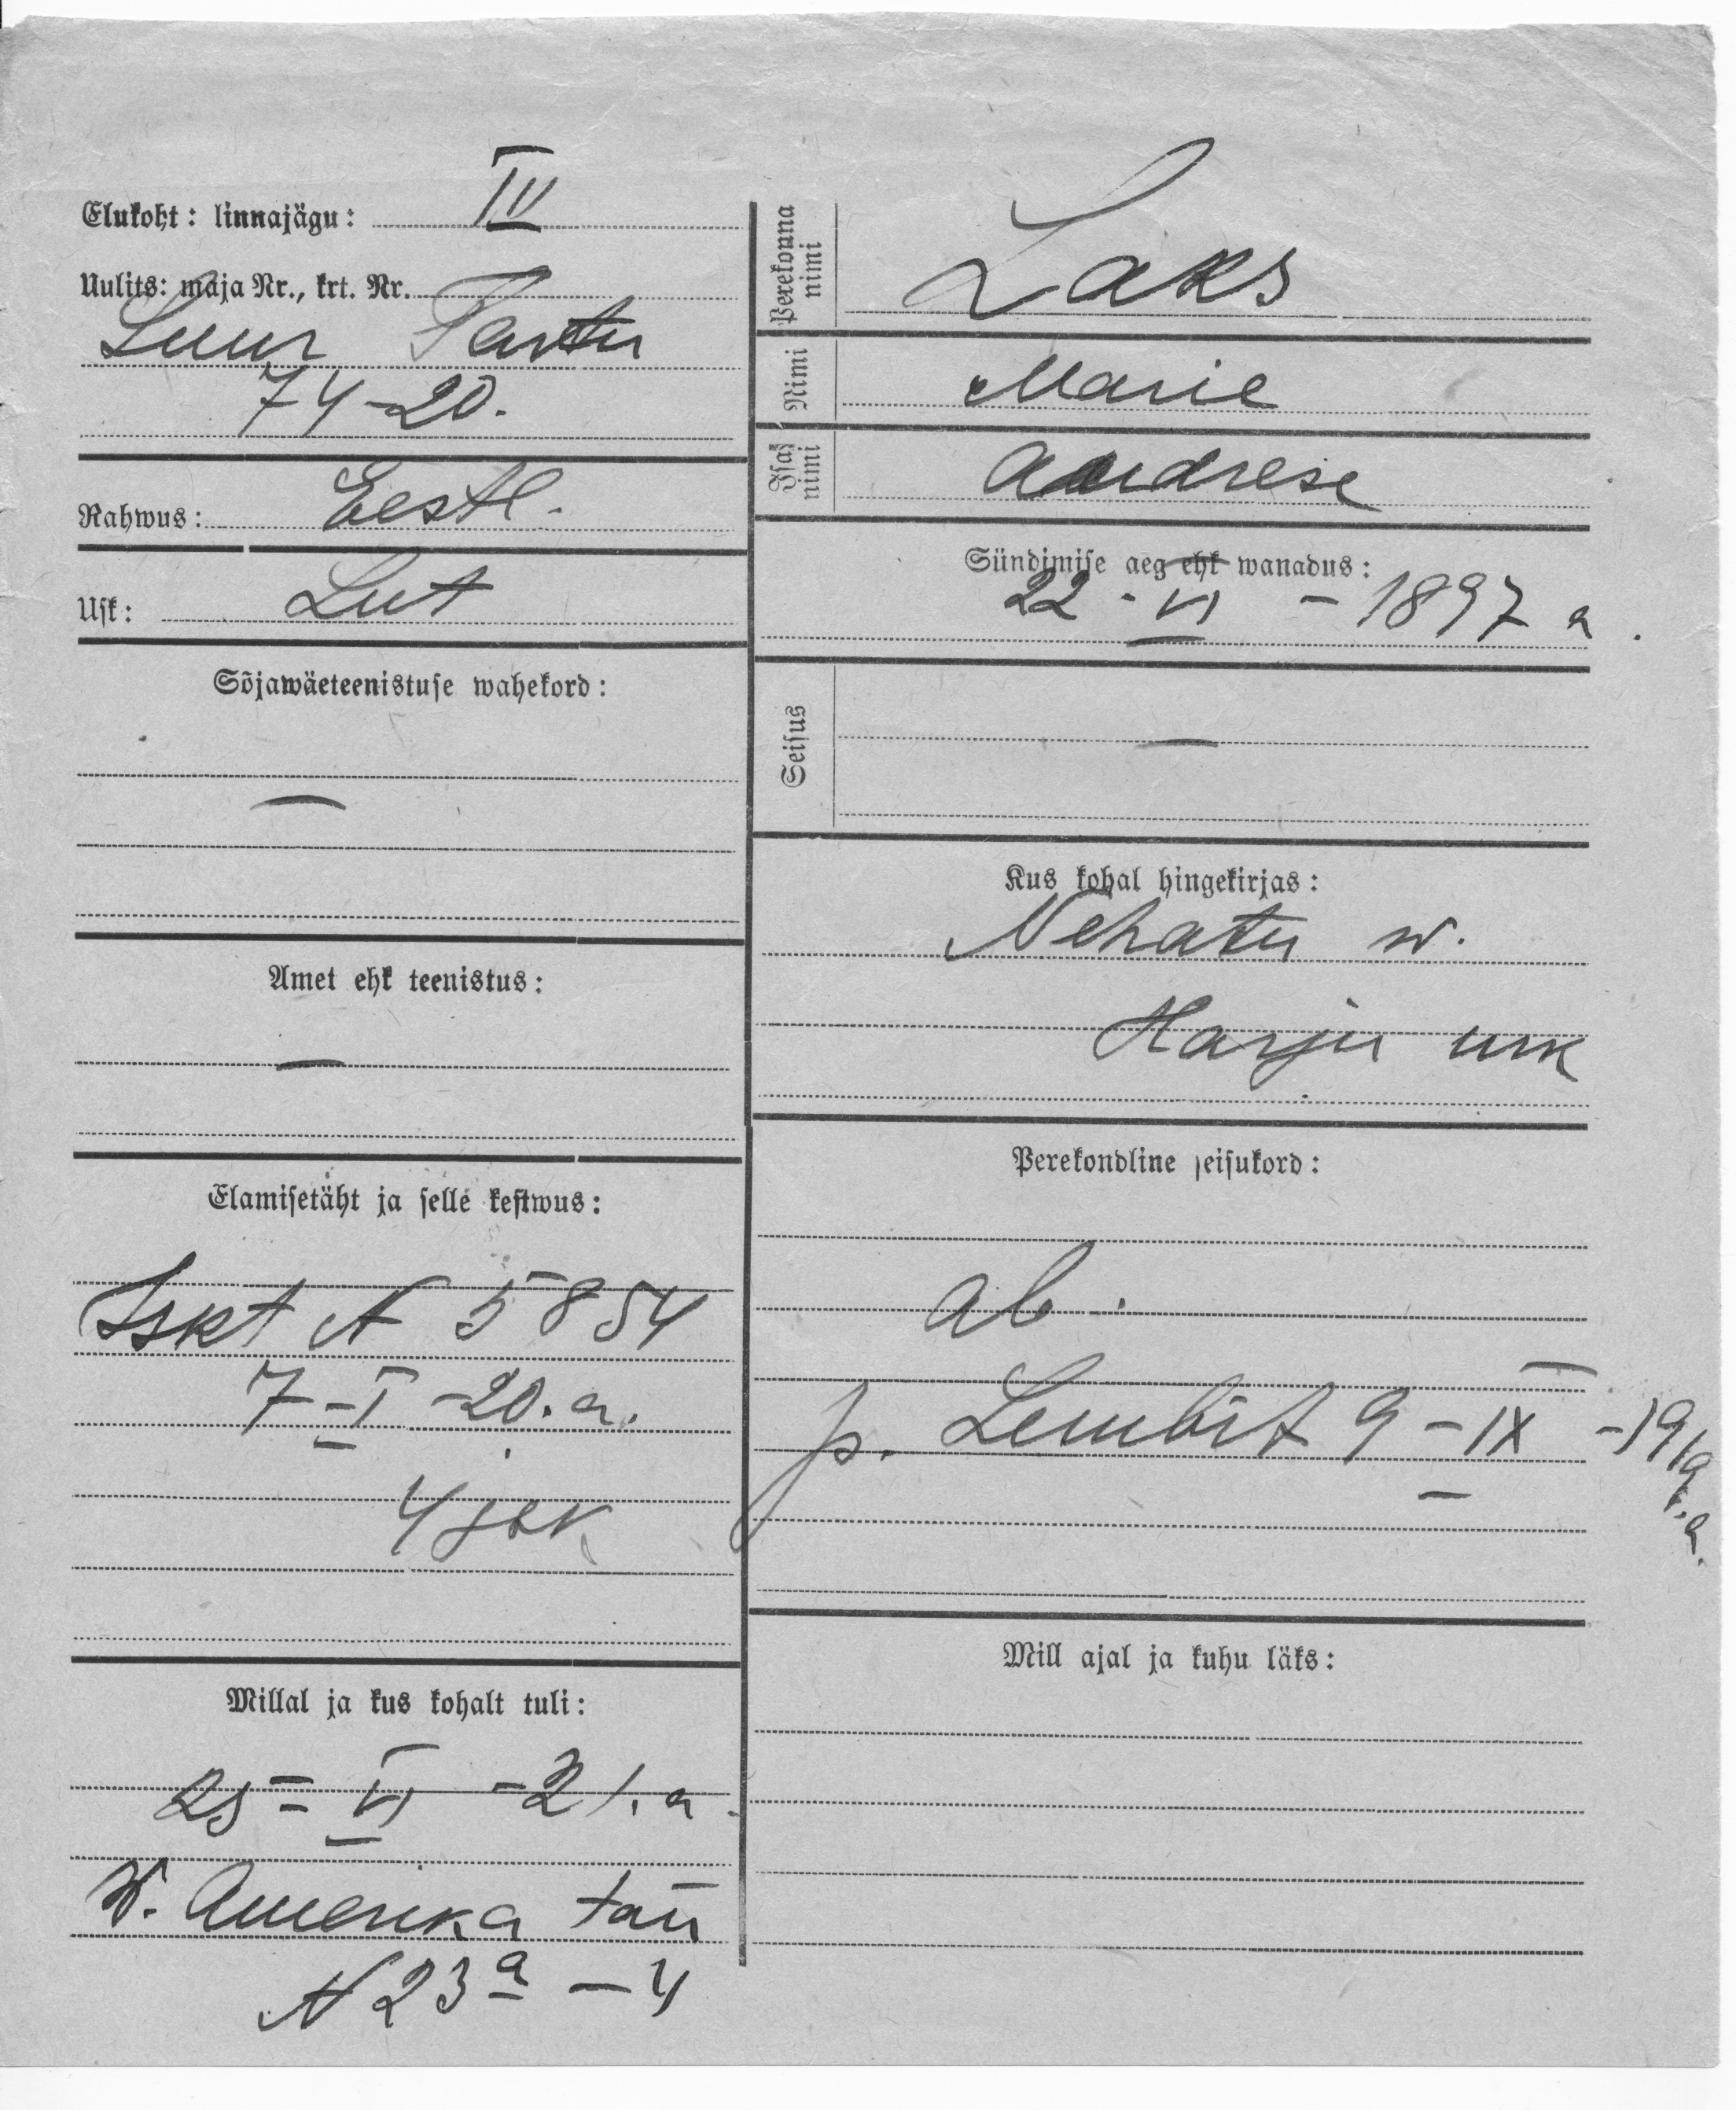 Elukoht: linnajägu: IV
Uulits: maja Nr., krt. Nr.
Suur Tartu
74-20.
Rahwus: Eestl.
Usk: Lut
Sõjawäeteenistuse wahekord:
—
Amet ehk teenistus:
—
Elamisetäht ja selle kestwus:
Iskt N 5854
7-I-20. a.
4 jsk
Millal ja kus kohalt tuli:
25-VI-21. a.
W. Amerika tän
N 23a-4
Perekonna nimi Laks
Nimi Marie
Isa nimi Andrese
Sündimise aeg ehk wanadus:
22-VI-1897 a.
Seisus —
Kus kohal hingekirjas:
Nehatu w.
Harju mk
Perekondline seisukord:
ab.
p. Lembit 9-IX-1919. a.
Mill ajal ja kuhu läks: